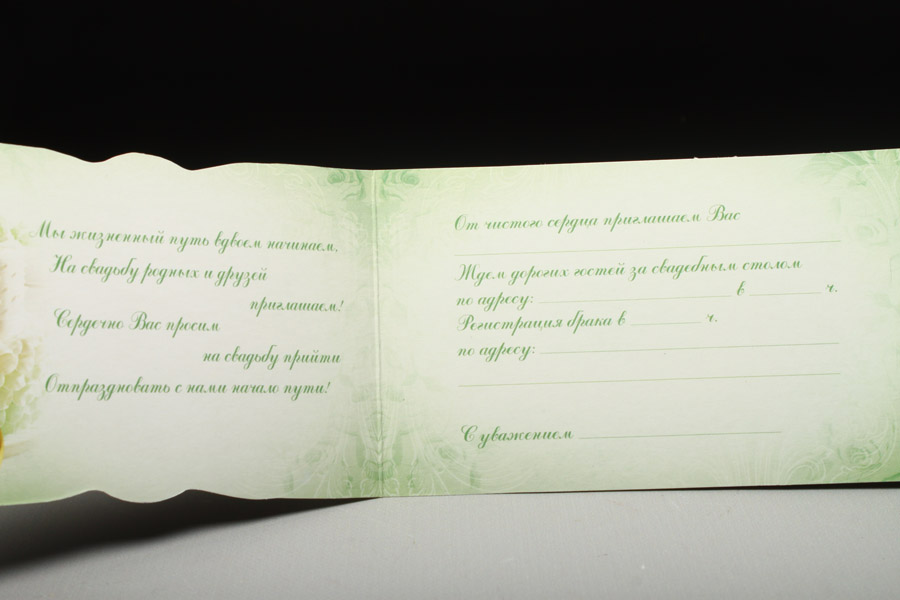 Мы жизненный путь вдвоем начинаем,
На свадьбу родных и друзей
приглашаем!
Сердечно Вас просим
на свадьбу прийти
Отпраздновать с нами начало пути!
От чистого сердца приглашаем Вас
Ждем дорогих гостей за свадебным столом
по адресу: в ч.
Регистрация брака в ч.
по адресу:
С уважением